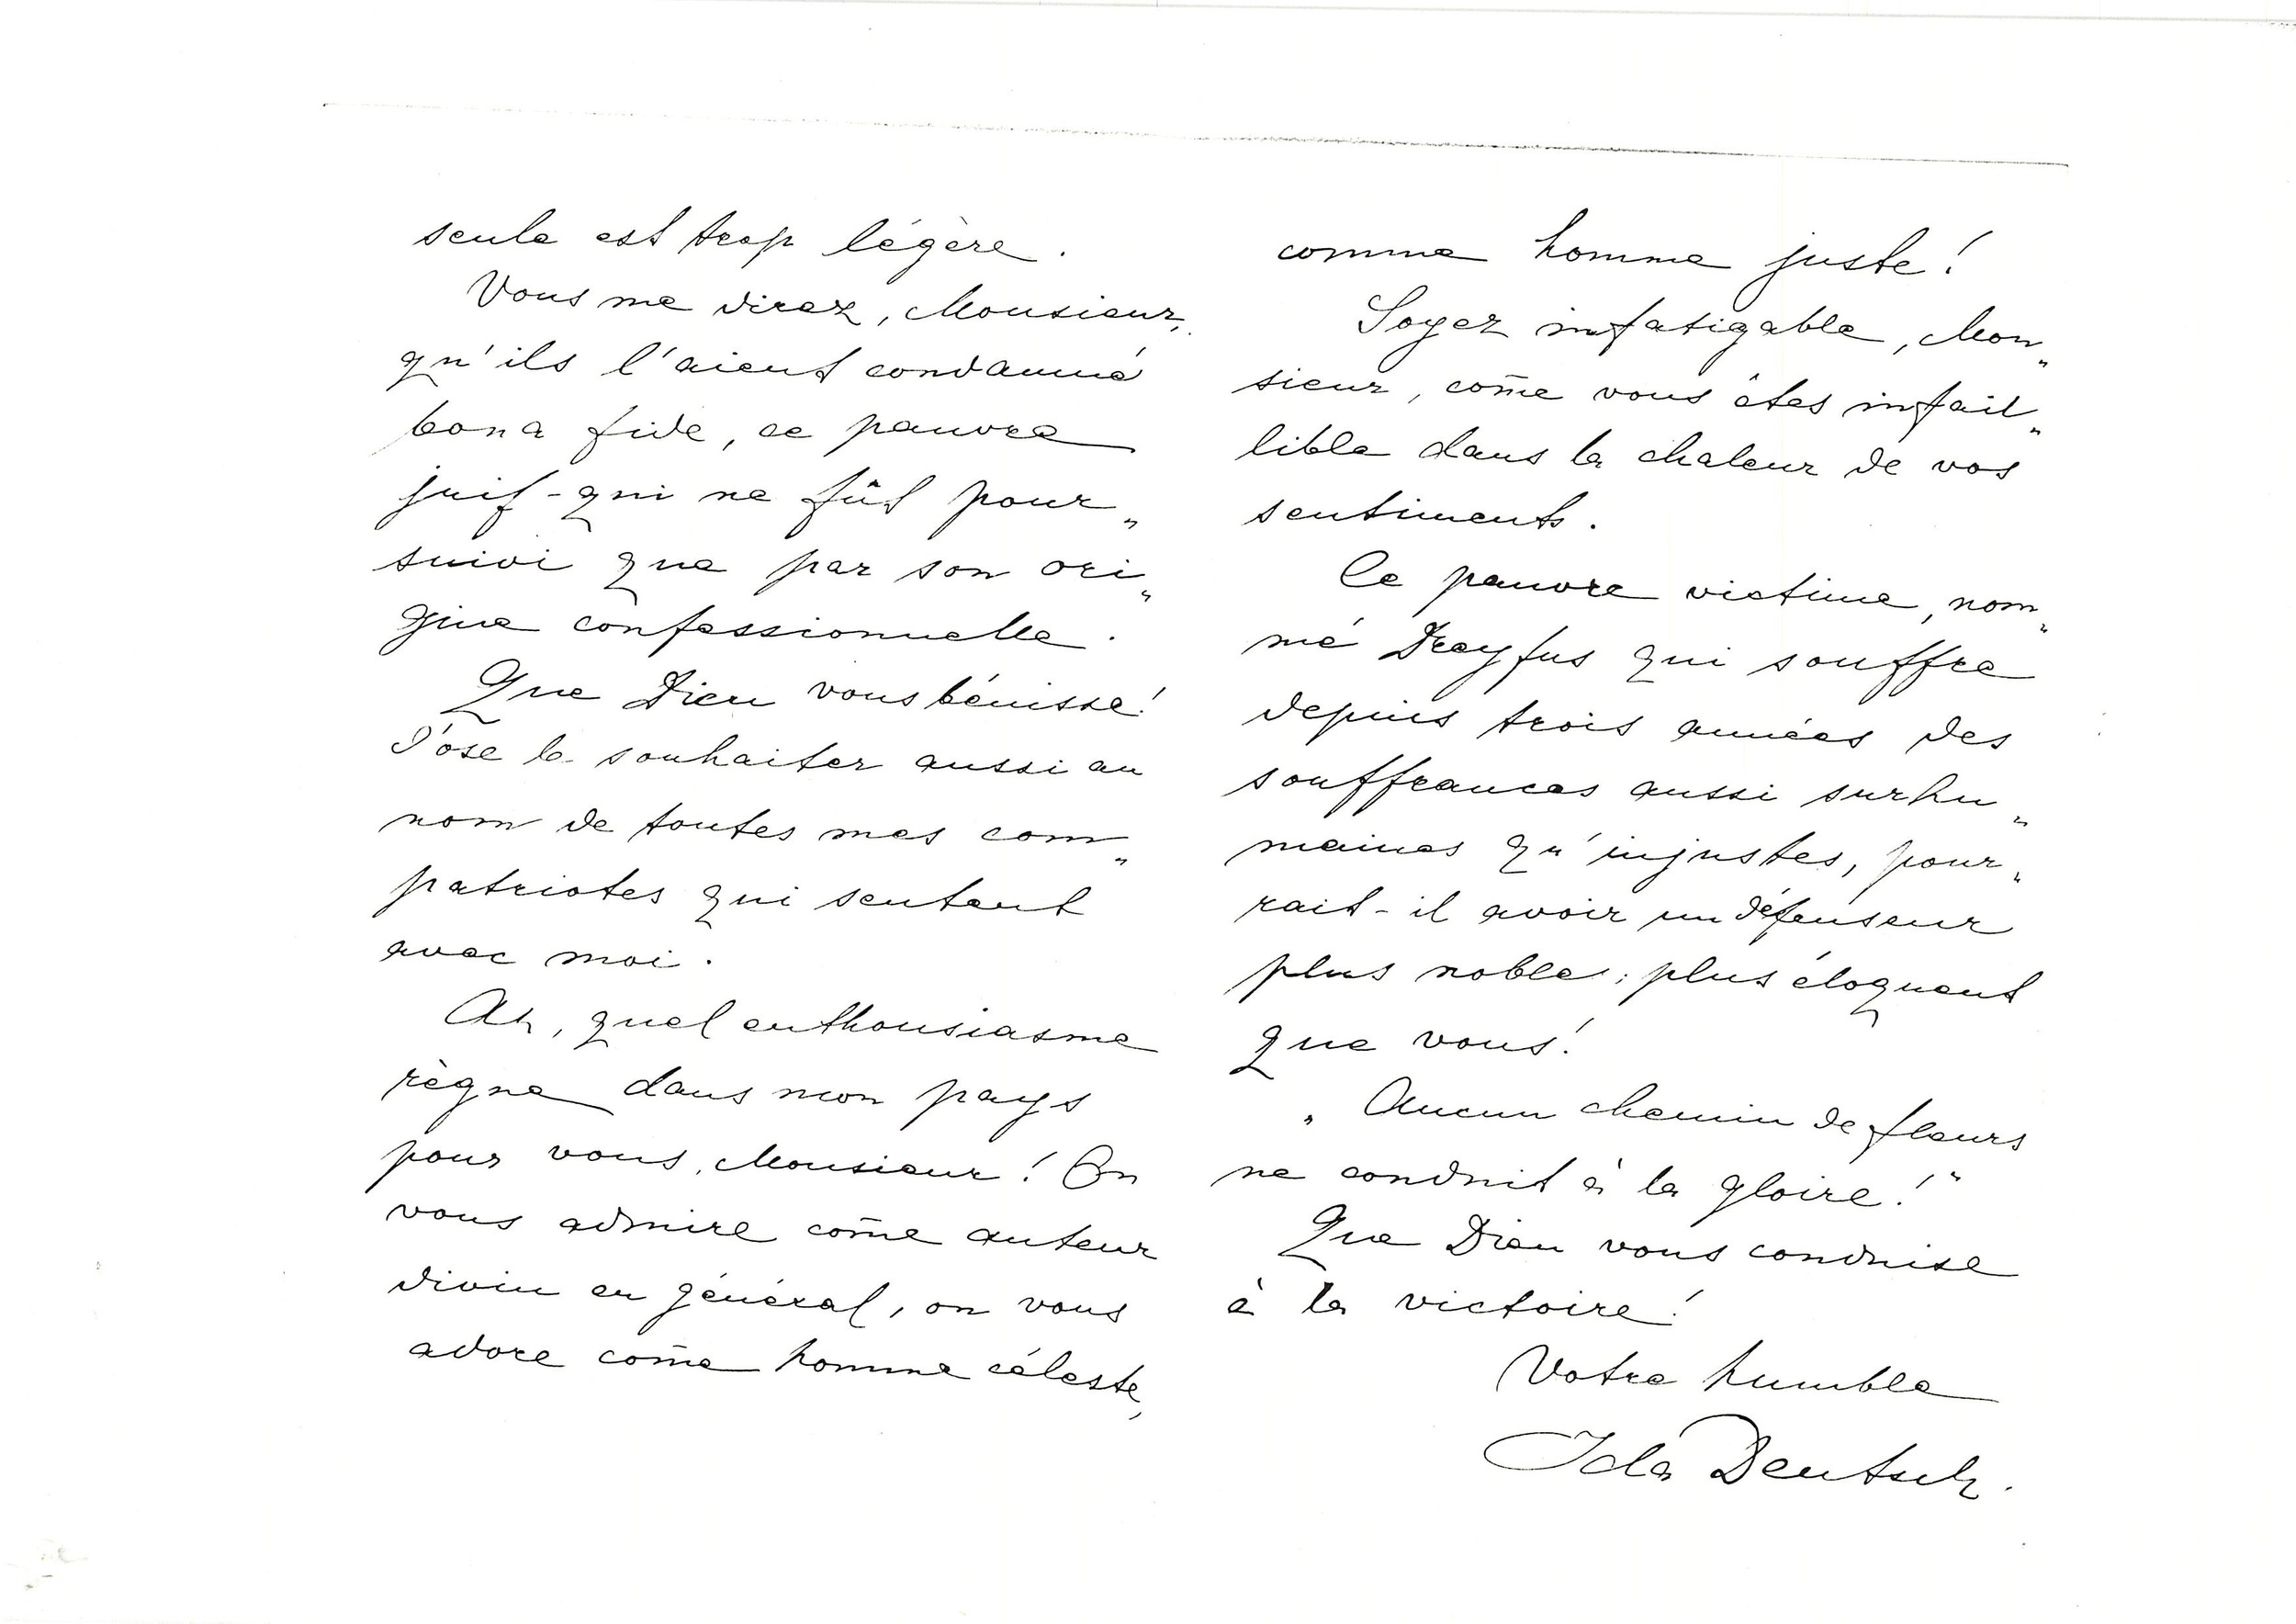 seule est trop légère.
Vous me direz, Monsieur,
qu'ils l'aient condamné
bona fide, ce pauvre
juif - qui ne fût pour„
suivi que par son ori„
gine confessionnelle.
Que Dieu vous bénisse!
J'ose le souhaiter aussi au
nom de toutes mes com„
patriotes qui sentent
avec moi.
Ah, quel enthousiasme
règne dans mon pays
pour vous, Monsieur! On
vous admire com̄e auteur
divin en général, on vous
adore com̄e homme céleste,
comme homme juste!
Soyez infatigable, Mon„
sieur, com̄e vous êtes infail„
lible dans la chaleur de vos
sentiments.
Ce pauvre victime, nom„
mé Dreyfus qui souffre
depuis trois années des
souffrances aussi surhu„
maines qu'injustes, pour„
rait-il avoir un défenseur
plus noble; plus éloquent
que vous!
„Aucun chemin de fleurs
ne conduit à la gloire!"
Que Dieu vous conduise
à la victoire!
Votre humble
Ida Deutsch.